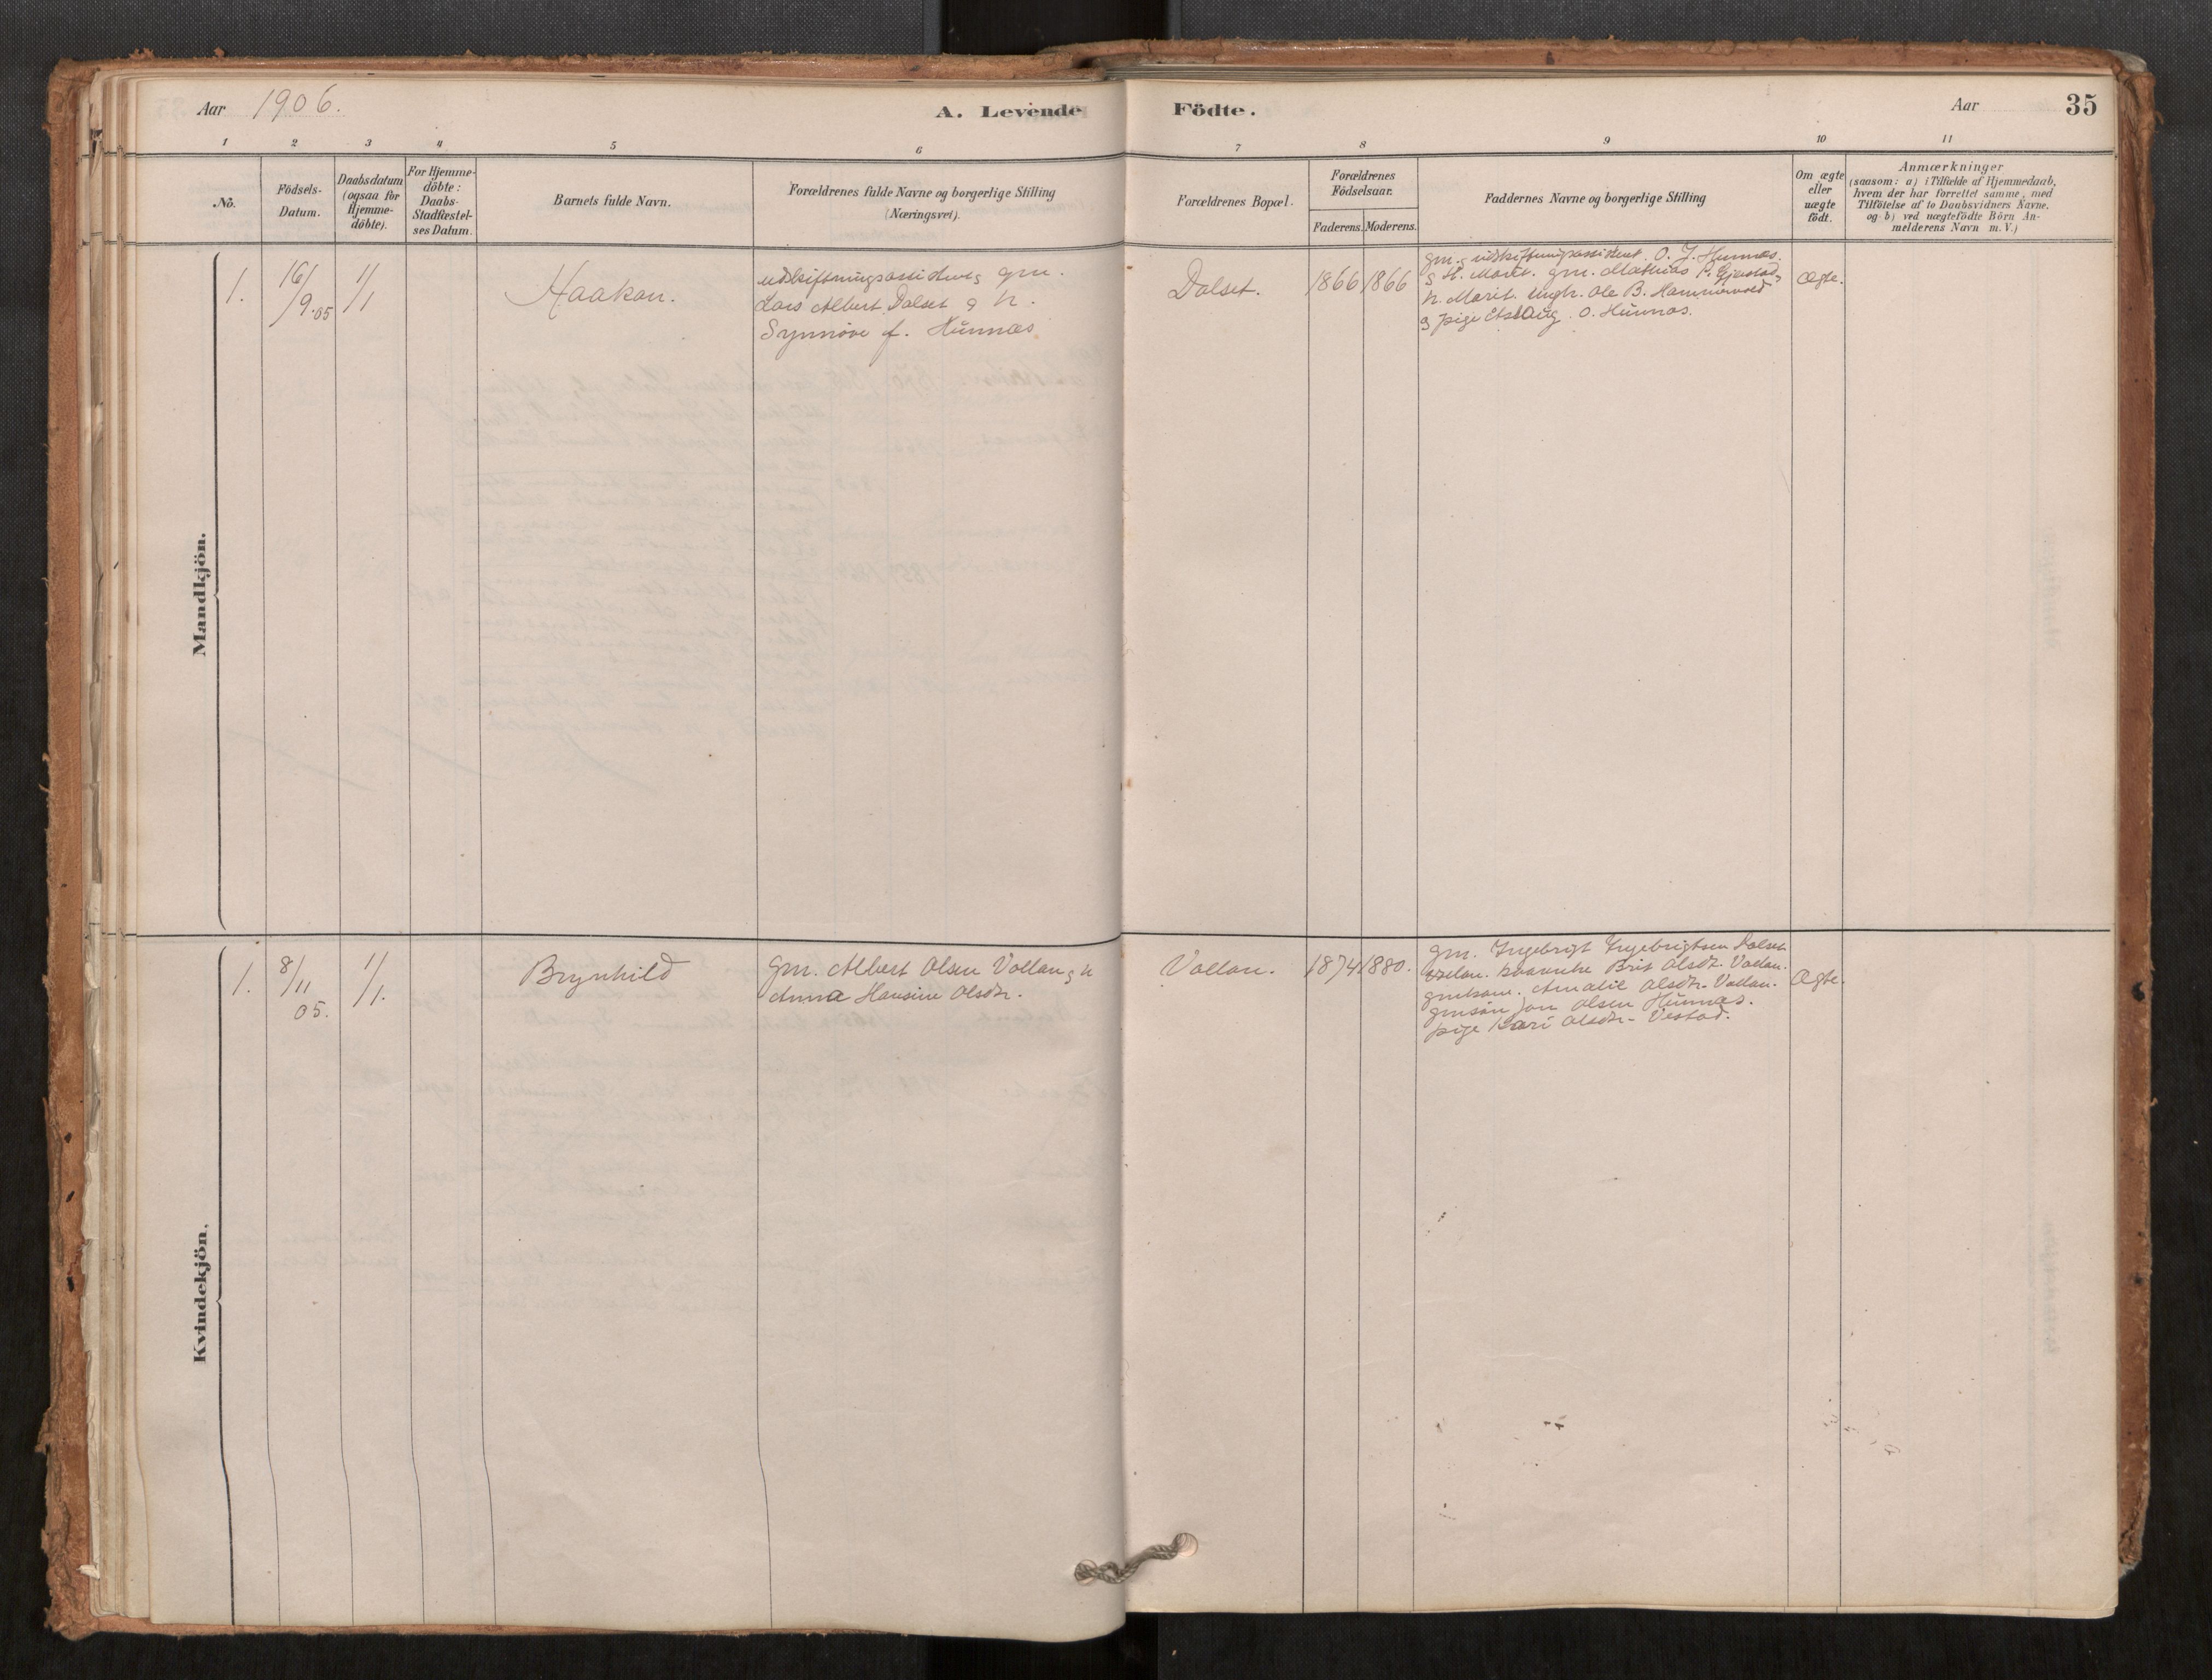 Aar 1906.
A. Levende Födte.
Aar 35
1 2 3 4 5 6 7 8 9 10 11
No.
Födsels-
Datum.
Daabsdatum
(ogsaa for
Hjemme-
döbte).
For Hjemme-
döbte:
Daabs-
Stadfæstel-
ses Datum.
Barnets fulde Navn.
Forældrenes fulde Navne og borgerlige Stilling
(Næringsvei).
Forældrenes Bopæl.
Forældrenes
Födselsaar.
Faderens. Moderens.
Faddernes Navne og borgerlige Stilling
Om ægte
eller
uægte
födt.
Anmærkninger
(saasom: a) i Tilfælde af Hjemmedaab,
hvem der har forrettet samme, med
Tilföielse af to Daabsvidners Navne,
og b) ved uægtefödte Börn An-
melderens Navn m. V.)
Mandkjön.
1.
16/
/9.05
1/
/1
Haakon.
udskiftningsassistent gm.
Lars Albert Dalset og h.
Synnöve f. Hunnæs
Dalset.
1866 1866
gm. udskiftningsassistent O. J. Hunnæs.
og H. Marit. gm. Mathias P. Gjerstad,
h. Marit. Ungk. Ole B. Hammervold
og pige Aslaug O. Hunnæs.
Ægte.
Kvindekjön.
1.
8/
/11
05.
1/
/1.
Brynhild
Gm. Albert Olsen Vollan og h
Anna Hansine Olsdtr.
Vollan.
1874 1880.
gm. Ingebrigt Ingebrigtsen Dalset
Brit Olsdt. Vollan.
Amalie Olsdtr. Vollan.
gmsön Jon Olsen Hunnæs.
pige Kari Olsdtr. Vestad.
Ægte.